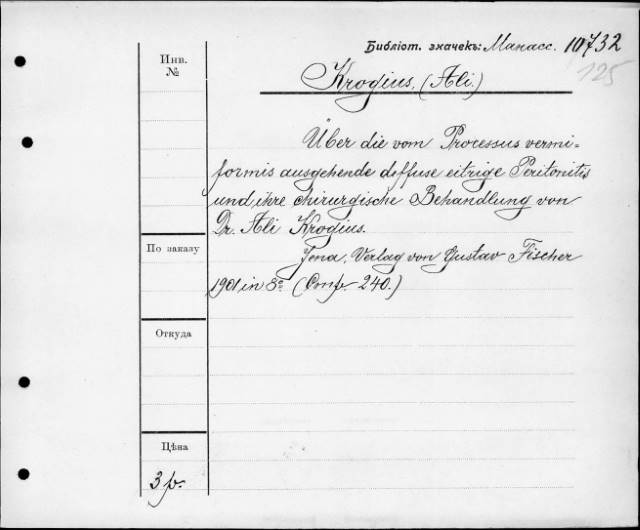 Библіот. значекъ: Манасс. 10732
125
Инв.
№
Krogius, (Ali.)
Über die vom Processus vermi=
formis ausgehende diffuse eitrige Peritonitis
und ihre chirurgische Behandlung von
Dr. Ali Krogius.
По заказу
Jena, Verlag von Gustav Fischer
1901 in 8º (Стр. 240.)
Откуда
Цѣна
3 р.